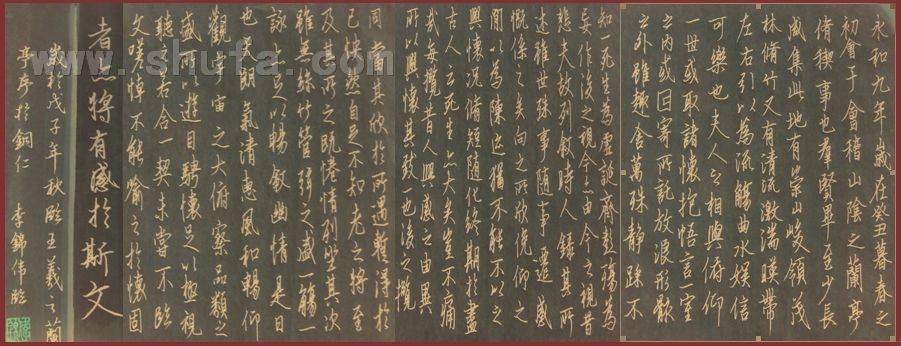 永和九年歲在癸丑暮春之
初會于會稽山陰之蘭亭
脩禊事也羣賢畢至少長
咸集此地有崇山峻領茂
林脩竹又有清流激湍暎帶
左右引以為流觴曲水娛信
可樂也夫人之相與俯仰
一世或取諸懷抱悟言一室
之內或因寄所託放浪形骸
之外雖趣舍萬殊靜躁不
知一死生為虛誕齊彭殤為
妄作後之視今亦由今之視昔
悲夫故列敘時人錄其所
述雖世殊事隨事遷感
慨係之矣向之所欣俛仰之
間以為陳迹猶不能不以之
興懷況脩短隨化終期於盡
古人云死生亦大矣豈不痛
哉每攬昔人興感之由異
所以興懷其致一也後之攬
同當其欣於所遇暫得於
己怏然自足不知老之將至
及其所之既惓情列坐其次
雖無絲竹管絃之盛一觴一
詠亦足以暢敘幽情是日
也天朗氣清惠風和暢仰
觀宇宙之大俯察品類之
盛所以遊目騁懷足以極視
聽若合一契未嘗不臨
文嗟悼不能喻之於懷固
者亦將有感於斯文
歲於戊子年秋臨王羲之蘭
亭序於銅仁 李錦偉臨
www.shufa.com